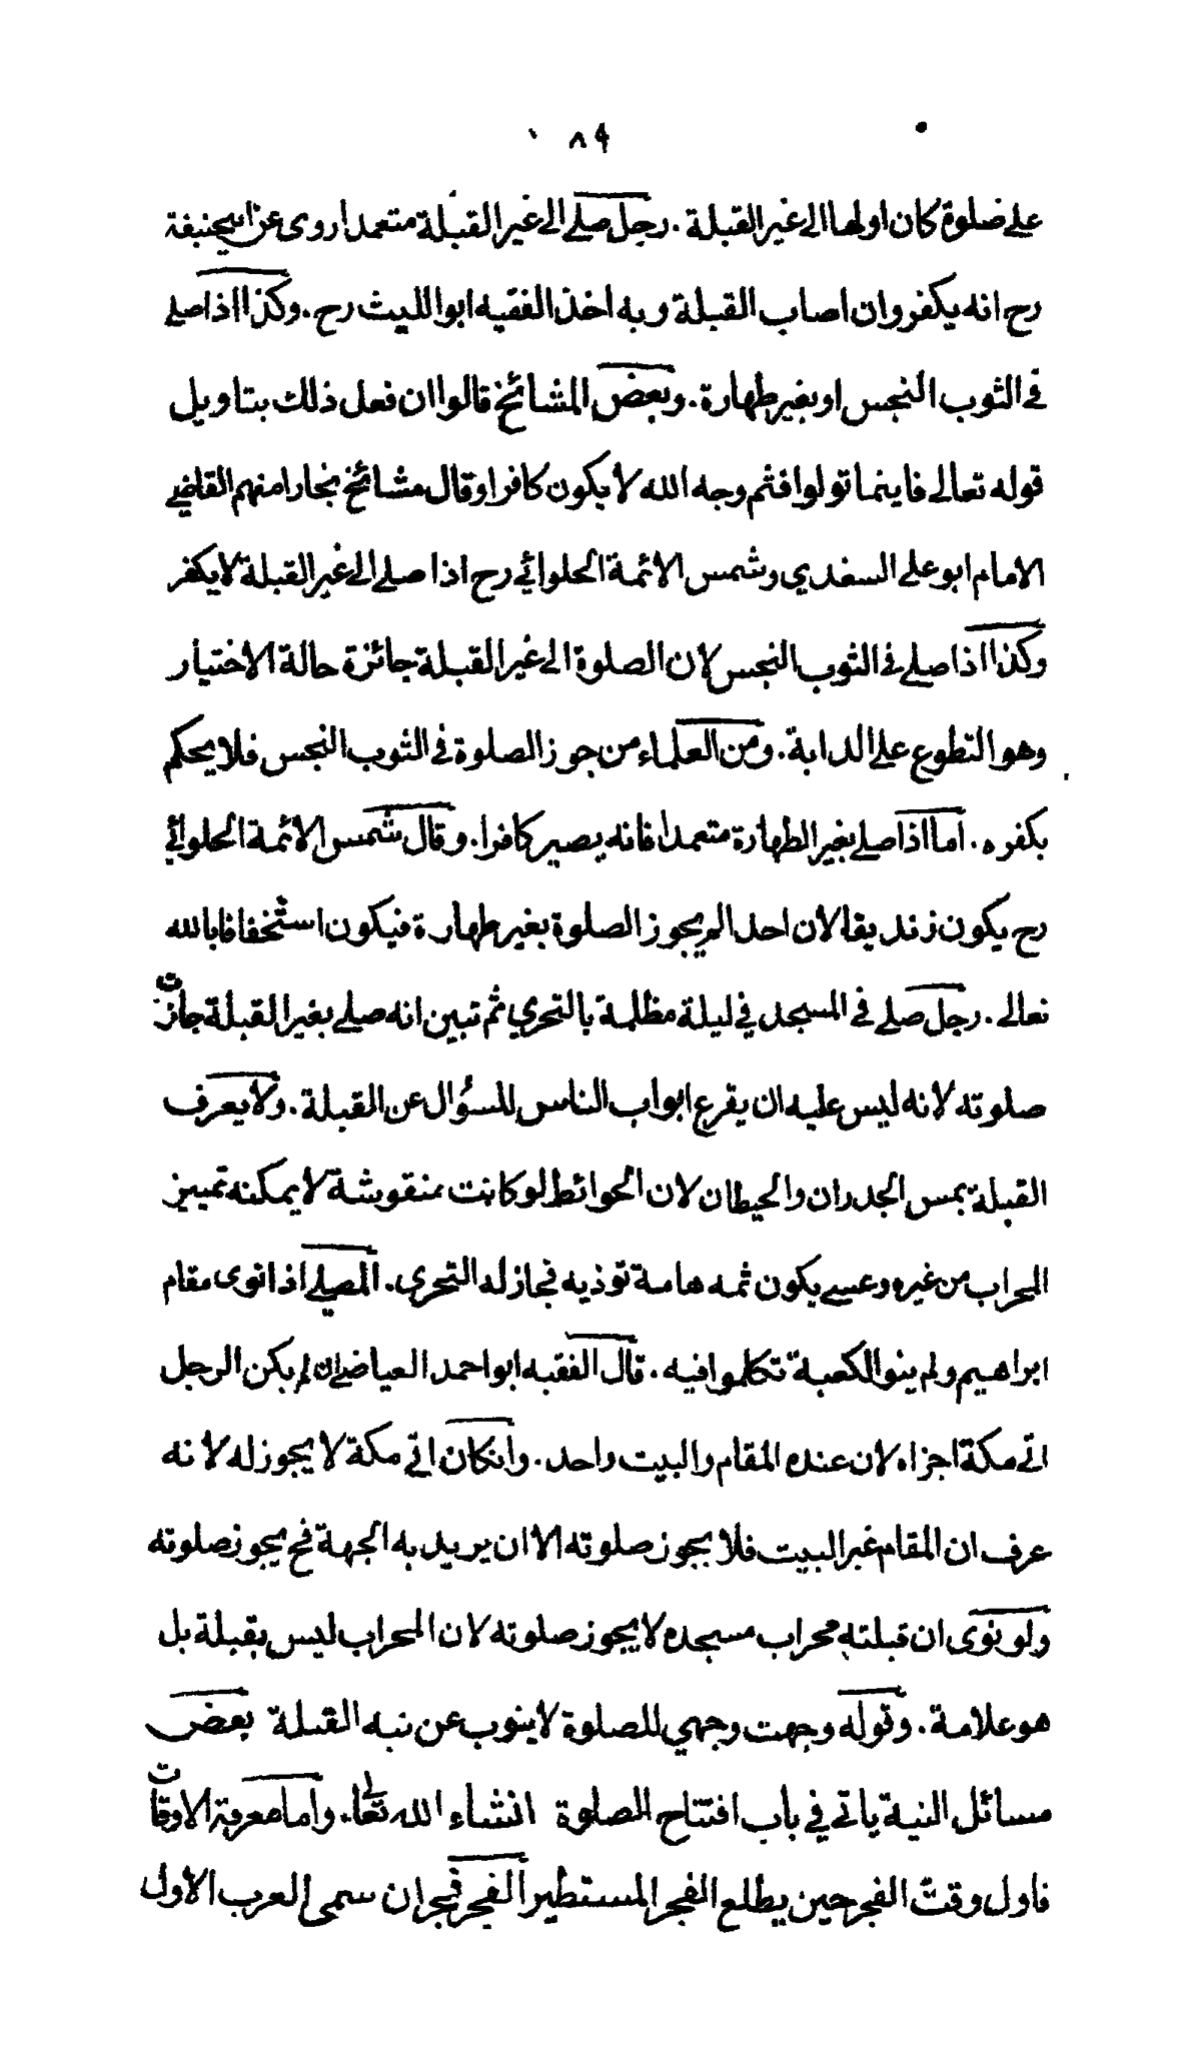 ٨٩
على صلوة كان اولها الى غير القبلة . رجل صلى الى غير القبلة متعمدا روى عن ابيحنيفة
رح انه يكفر وان اصاب القبلة وبه اخذ الفقيه ابو الليث رح . وكذا اذا صلى
فى الثوب النجس او بغير طهارة . وبعض المشائخ قالوا ان فعل ذلك بتاويل
قوله تعالى فاينما تولوا فثم وجه الله لا يكون كافرا وقال مشائخ بخارا منهم القاضى
الامام ابو على السغدي وشمس الائمة الحلوائي رح اذا صلى الى غير القبلة لا يكفر
وكذا اذا صلى فى الثوب النجس لان الصلوة الى غير القبلة جائزة حالة الاختيار
وهو التطوع على الدابة . ومن العلماء من جوز الصلوة فى الثوب النجس فلا يحكم
بكفره . اما اذا صلى بغير الطهارة متعمدا فانه يصير كافرا . وقال شمس الائمة الحلوائي
رح يكون زنديقا لان احدا لم يجوز الصلوة بغير طهارة فيكون استخفافا بالله
تعالى . رجل صلى فى المسجد في ليلة مظلمة بالتحري ثم تبين انه صلى بغير القبلة جازت
صلوته لانه ليس عليه ان يقرع ابواب الناس للسؤال عن القبلة . ولا يعرف
القبلة بمس الجدران والحيطان لان الحوائط لو كانت منقوشة لا يمكنه تمييز
المحراب من غيره وعسى يكون ثمه هامة توذيه فجاز له التحرى . المصلى اذا نوى مقام
ابراهيم ولم ينو الكعبة تكلموا فيه . قال الفقيه ابو احمد العياضى ان لم يكن الرجل
اتى مكة اجزاه لان عنده المقام والبيت واحد . وانكان اتى مكة لا يجوز له لانه
عرف ان المقام غير البيت فلا يجوز صلوته الا ان يريد به الجهة فح يجوز صلوته
ولو نوى ان قبلته محراب مسجده لا يجوز صلوته لان المحراب ليس بقبلة بل
هو علامة . وقوله وجهت وجهي للصلوة لا ينوب عن نيه القبلة بعض
مسائل النية ياتى في باب افتتاح الصلوة انشاء الله تعالى . واما معرفة الاوقات
فاول وقت الفجر حين يطلع الفجر المستطير الفجر فجران سمى العرب الاول